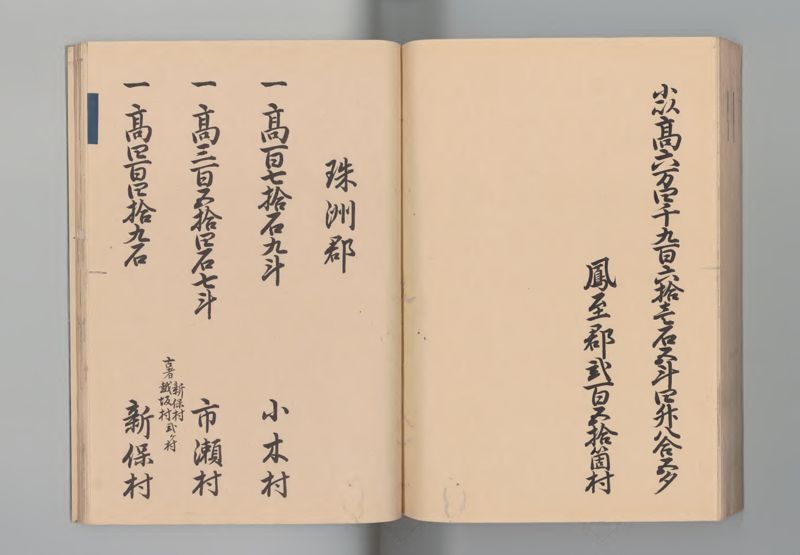 小以高六万四千九百六拾壱石五斗四升八合五夕
鳳至郡弐百五拾箇村
珠洲郡
一高百七拾石九斗
小木村
一高三百五拾四石七斗
市瀬村
新保村
古者越坂村弐ヶ村
一高四百四拾九石
新保村